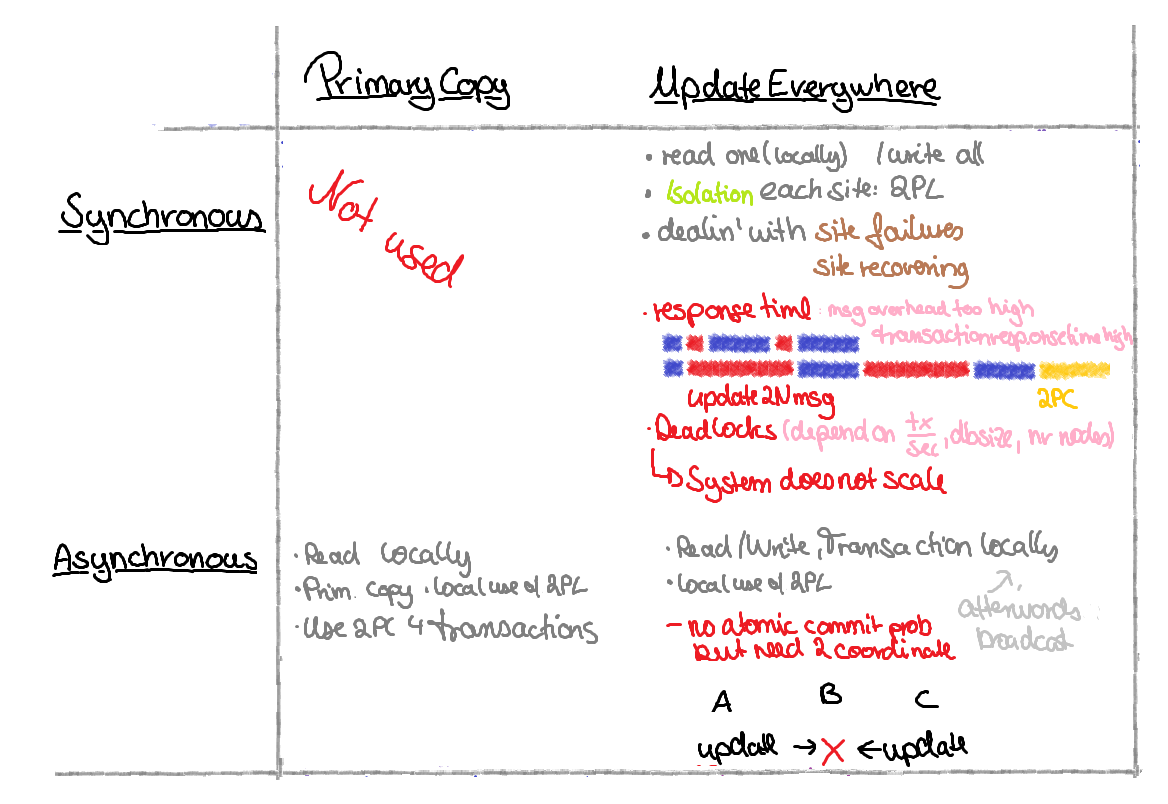 Primary Copy
Update Everywhere
Synchronous
Not used
• read one (locally) / write all
• Isolation each site: 2PL
• dealin' with site failures
site recovering
• response time : msg overhead too high
transaction response time high
update 2N msg
2PC
• Deadlocks (depend on tx/sec, dbsize, nr nodes)
↳ System does not scale
Asynchronous
• Read locally
• Prim. copy • local use of 2PL
• Use 2PC 4 transactions
• Read/Write, Transaction locally
• local use of 2PL
afterwords
broadcast
- no atomic commit prob
but need 2 coordinate
A B C
update → X ← update